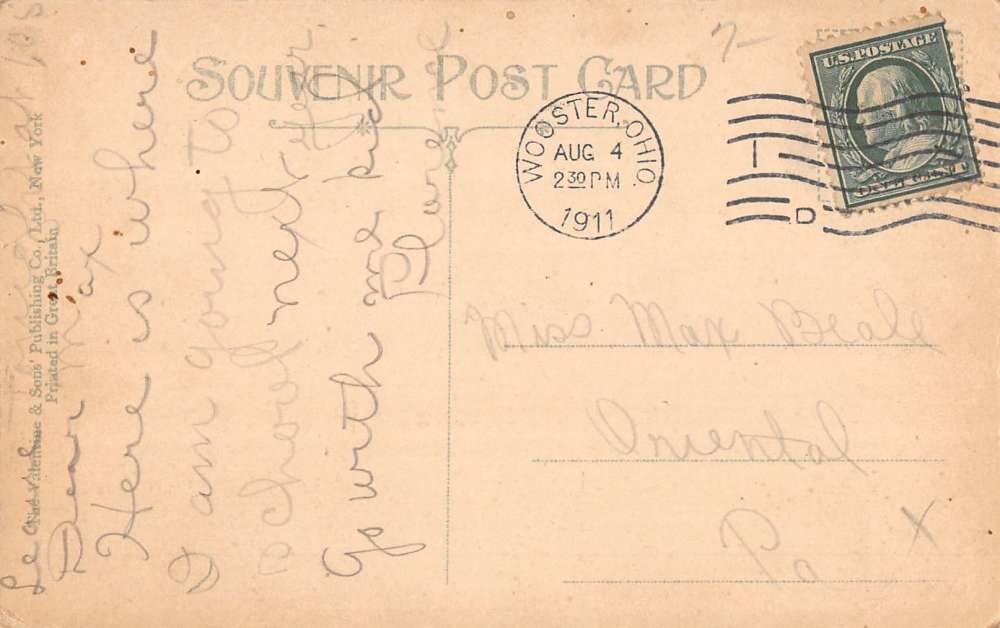 SOUVENIR POST CARD
7-
WOOSTER, OHIO
AUG 4
2 30 PM
1911
D
U.S. POSTAGE
The Valentine & Sons' Publishing Co., Ltd., New York
Printed in Great Britain
Dear Max
Here is where
I am going to
school next year
Go with me kid
Clarence
Miss Max Beale
Oriental
Pa
X